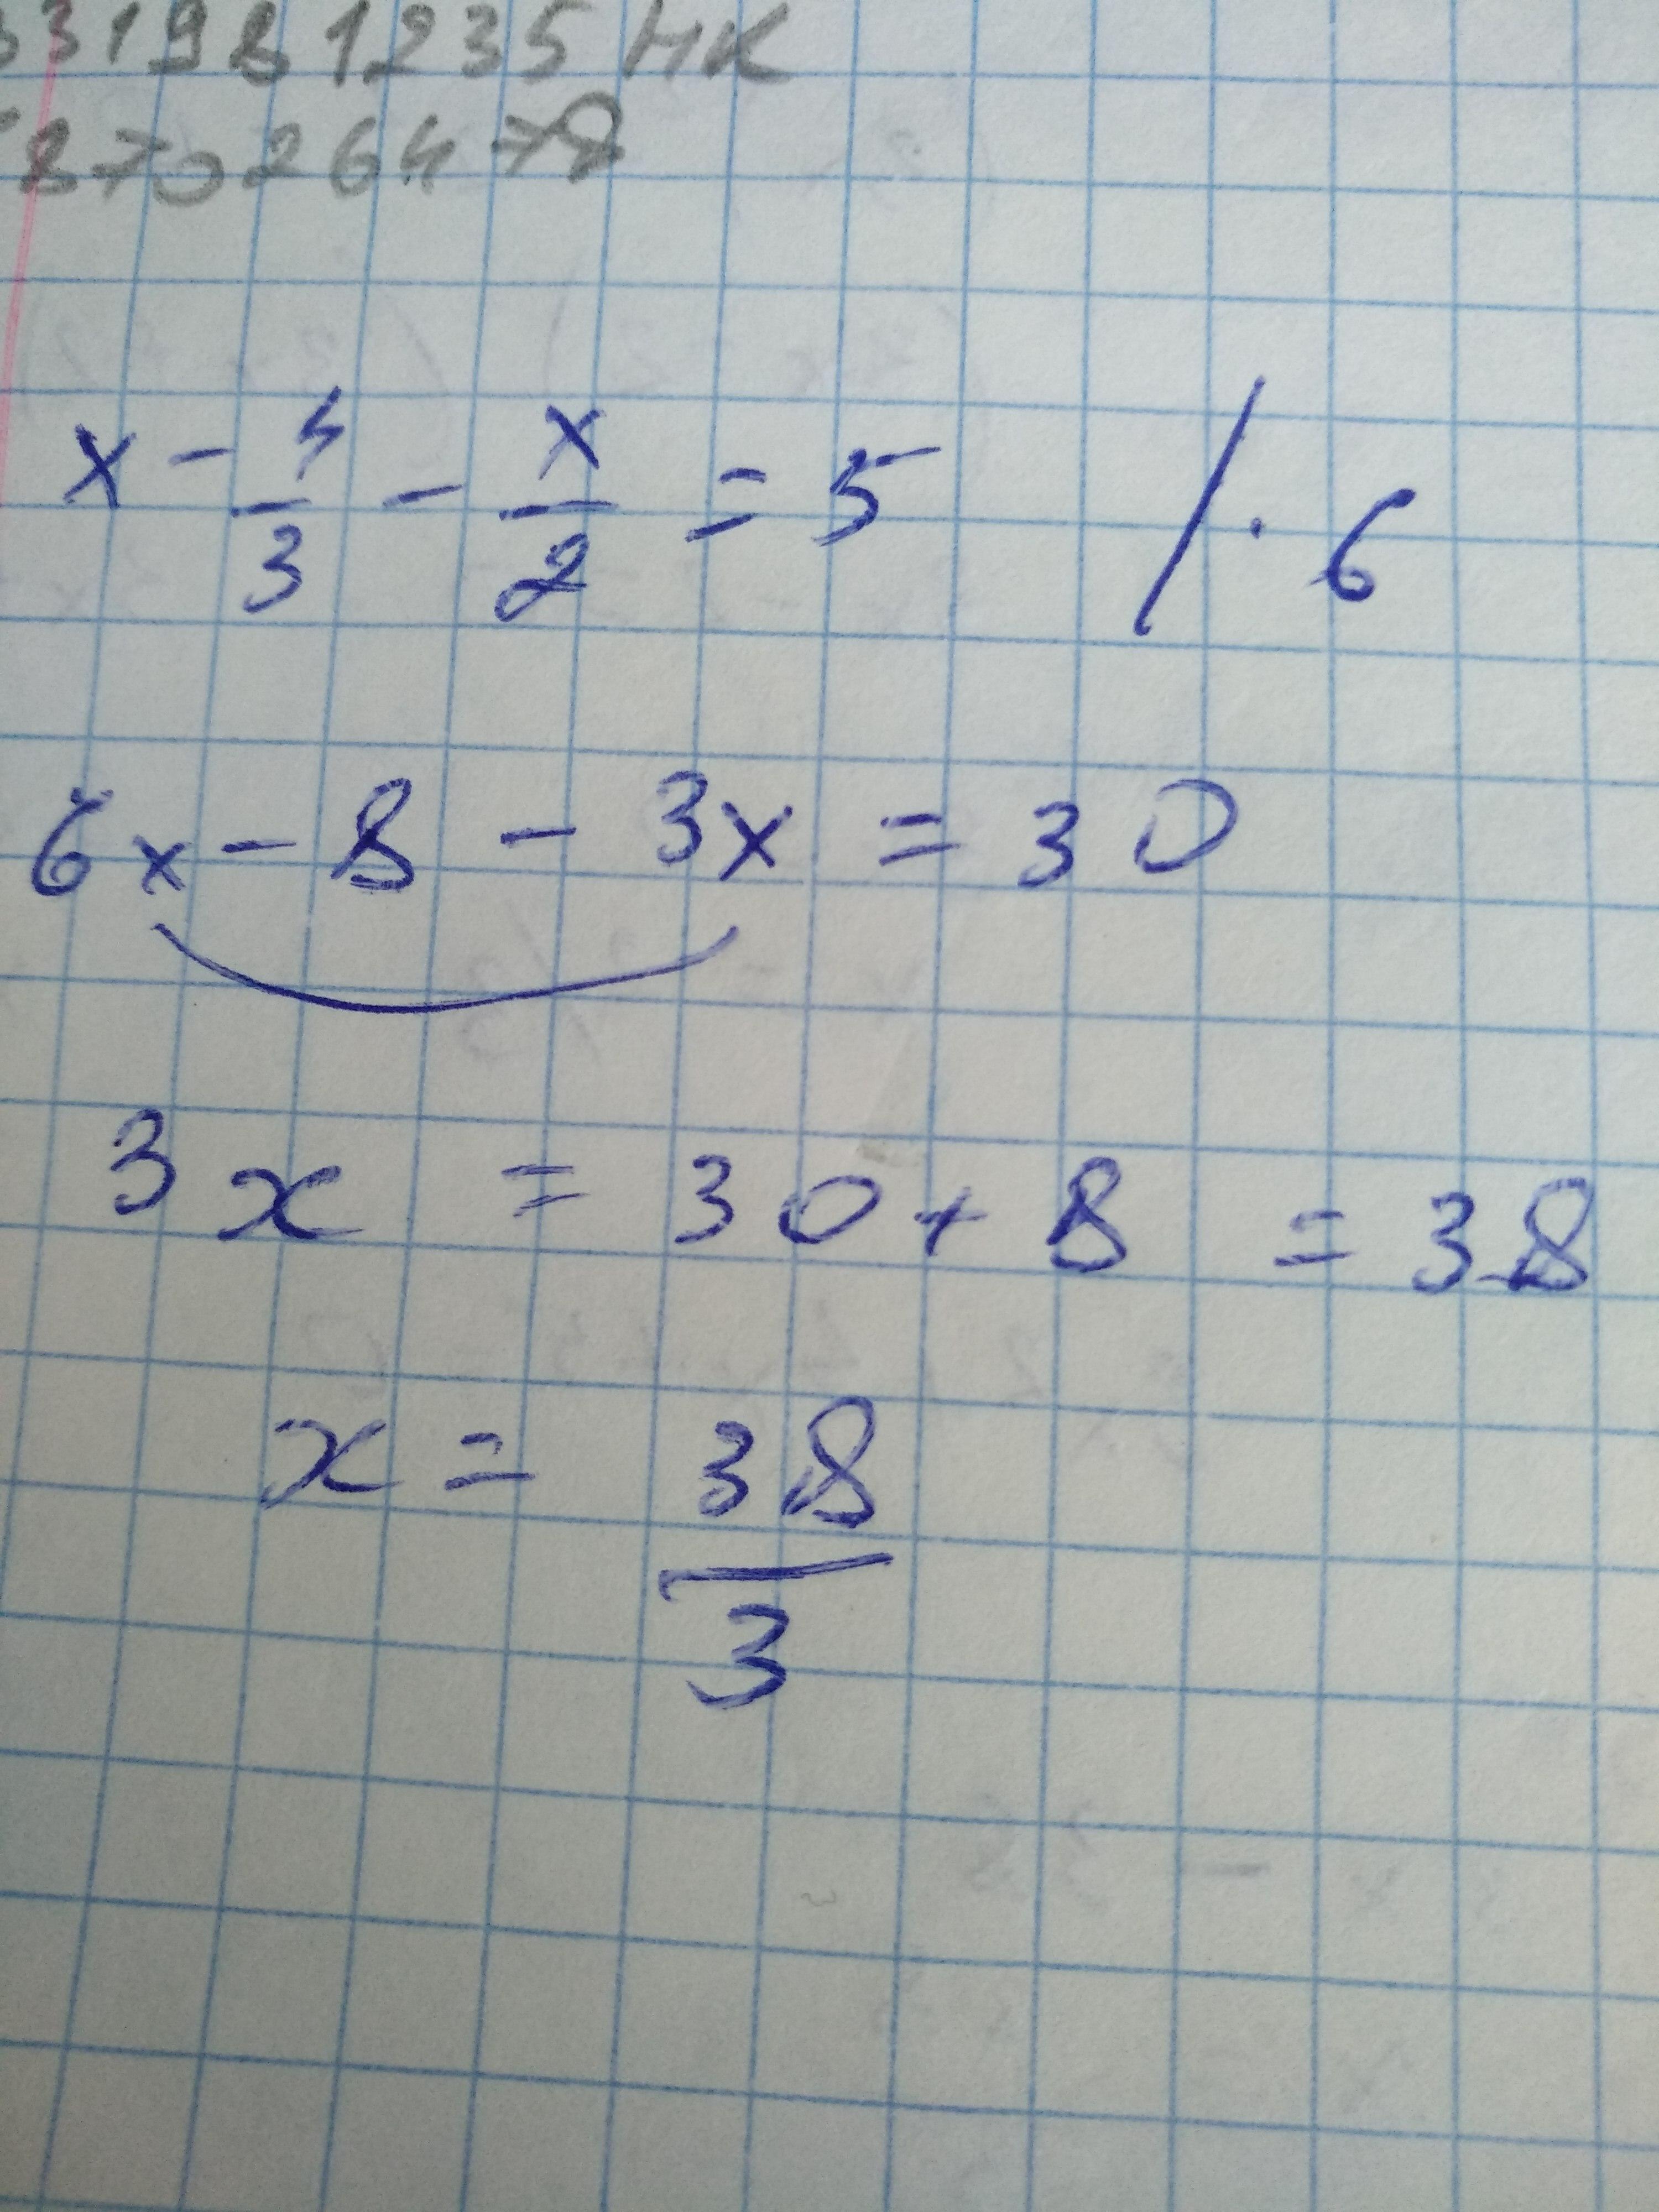 331981235 НК
87026478
x - 4/3 - x/2 = 5 / · 6
6x - 8 - 3x = 30
3x = 30 + 8 = 38
x = 38/3